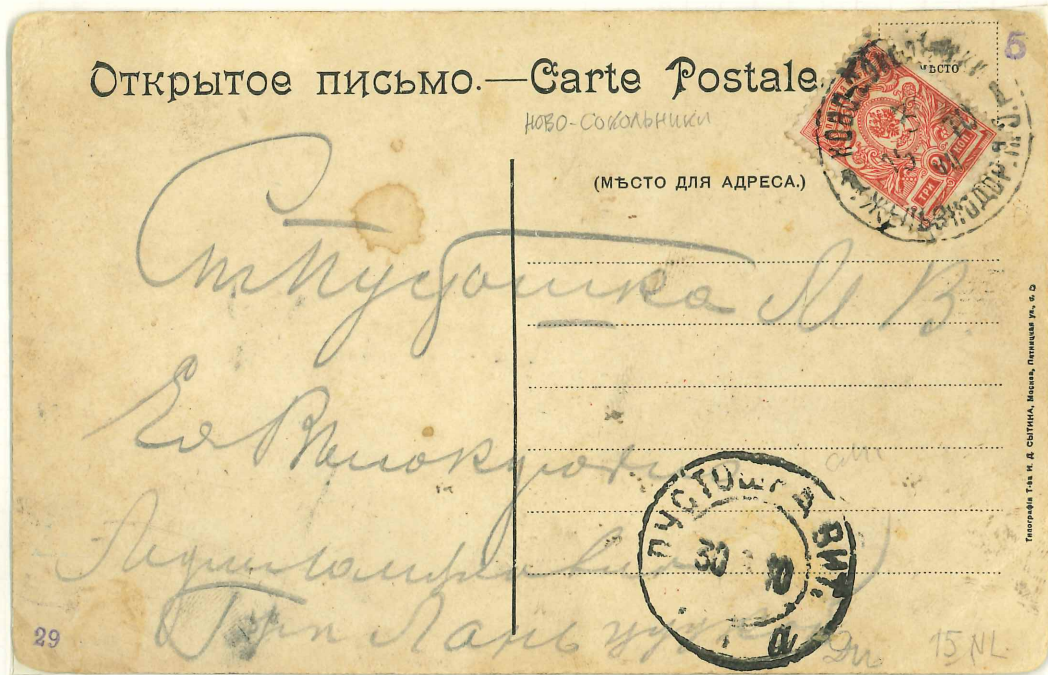 Открытое письмо.—Carte Postale
5
МѢСТО
НОВО-СОКОЛЬНИКИ
(МѢСТО ДЛЯ АДРЕСА.)
ТРИ КОП
ЖЕЛѢЗНОДОР. П.О.
Ст Пустошка М В
Ея Высокородию
ПУСТОШКА ВИТ.
30 10
Типографія Т-ва И. Д. СЫТИНА, Москва, Пятницкая ул., с. д.
29
15 NL